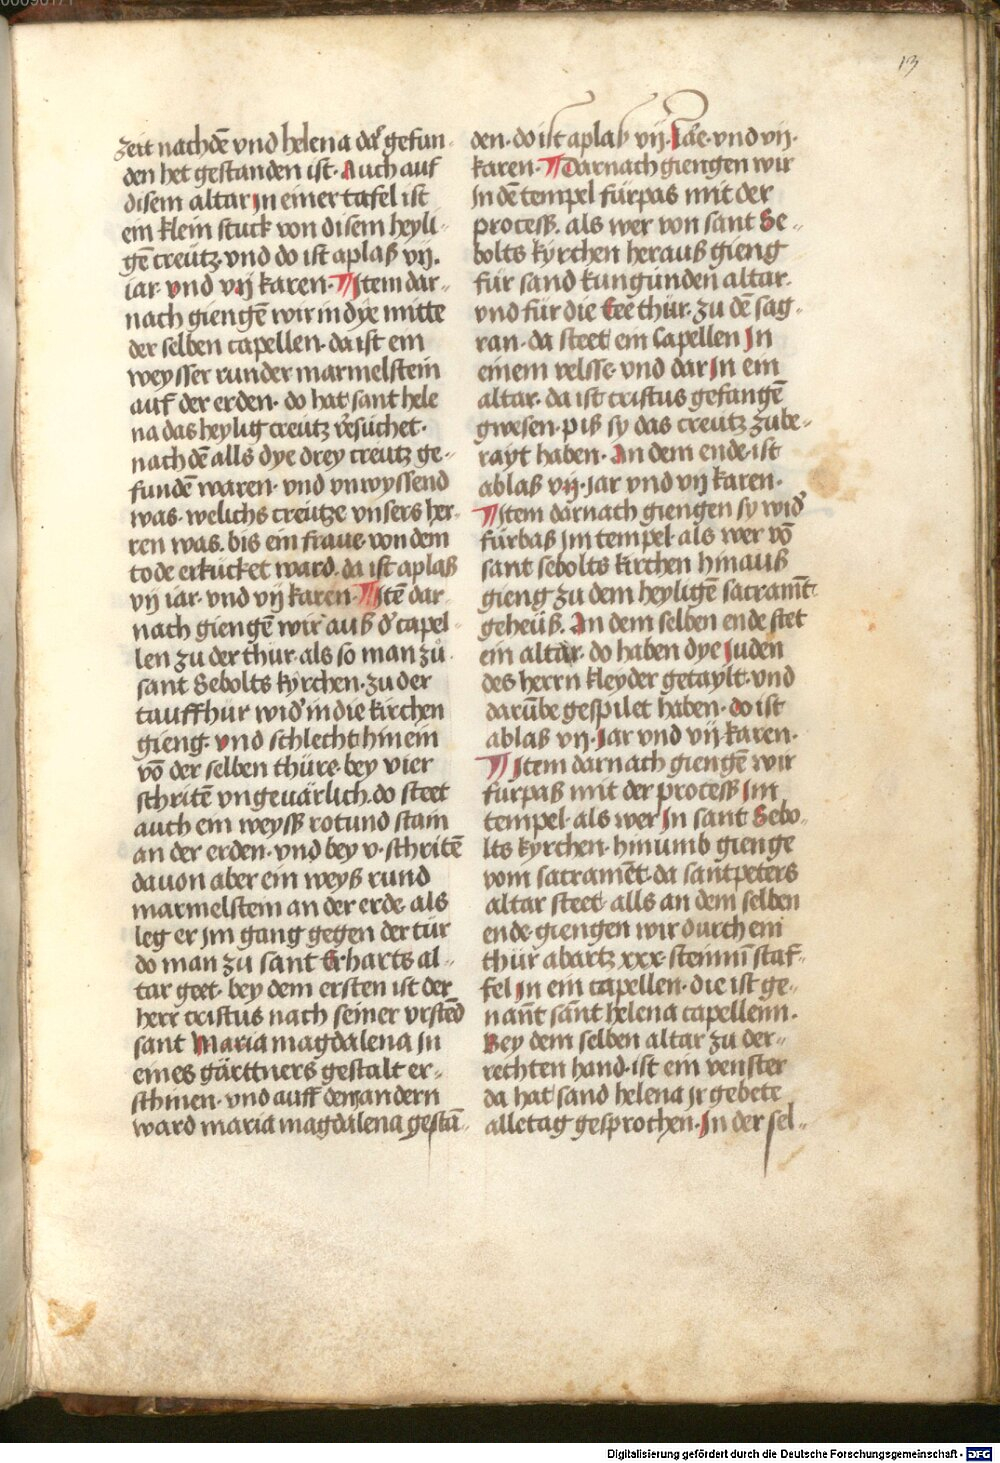 13
zeit nachdē vnd helena dar̄ gefun
den het gestanden ist. Auch auf
disem altar in einer tafel ist
ein klein stuck von disem heyli-
gē creütz. vnd do ist aplaß vij.
iar. vnd vij karen. ¶ Item dar-
nach giengē wir in dye mitte
der selben capellen. da ist ein
weysser runder marmelstein
auf der erden. do hat sant hele
na das heylig creutz v̄suchet.
nach dē alls dye drey creutz ge-
fundē waren. vnd vnwyssend
was. welichs creutze vnsers her-
ren was. bis ein fraue von dem
tode erkücket ward. da ist aplaß
vij iar. vnd vij karen. ¶ Itē dar-
nach giengē wir auß d' capel-
len zu der thür. als so man zů
sant Sebolts kyrchen. zu der
tauffthür wid' in die kirchen
gieng. vnd schlecht hinein
vō der selben thüre. bey vier
schritē vngeuärlich. do steet
auch ein weyss rotund stain
an der erden. vnd bey v. schritē
dauon aber ein weyß rund
marmelstein an der erde. als
leg er jm gang gegen der tür
do man zu sant Erharts al-
tar geet. bey dem ersten ist der
herr cristus nach seiner vrstēd
sant Maria magdalena in
eines gärttners gestalt er-
schinen. vnd auff dem andern
ward maria magdalena gestā-
den. do ist aplaß vij. Jare. vnd vij.
karen. ¶ Darnach giengen wir
in dē tempel fürpas mit der
process. als wer von sant Se-
bolts kyrchen herauß gieng
für sand kungunden altar.
vnd für die Eeē thür. zu dē sag-
ran. da steet ein Capellen in
einem velsse. vnd dar in ein
altar. da ist cristus gefangē
gwesen. piß sy das creutz zube-
rayt haben. An dem ende ist
ablaß vij. jar vnd vij karen.
¶ Item darnach giengen sy wid'
fürbaß im tempel. als wer vō
sant sebolts kirchen hinauß
gieng zu dem heyligē sacramēt
geheüß. An dem selben ende stet
ein altar. do haben dye Juden
des herrn kleyder getaylt. vnd
darūbe gespilet haben. do ist
ablaß vij. Jar vnd vij karen.
¶ Item darnach giengē wir
fürpaß mit der process im
tempel. als wer in sant Sebo-
lts kyrchen. hinumb gienge
vom sacramēt. da sant peters
altar steet. alls an dem selben
ende giengen wir durch ein
thür abartz xxx. steinnī staf-
fel in ein capellen. die ist ge-
nañt sant helena capellenn.
Bey dem selben altar zu der-
rechten hand. ist ein venster
da hat sand helena jr gebete
alletag gesprochen. In der sel-
Digitalisierung gefördert durch die Deutsche Forschungsgemeinschaft - DFG